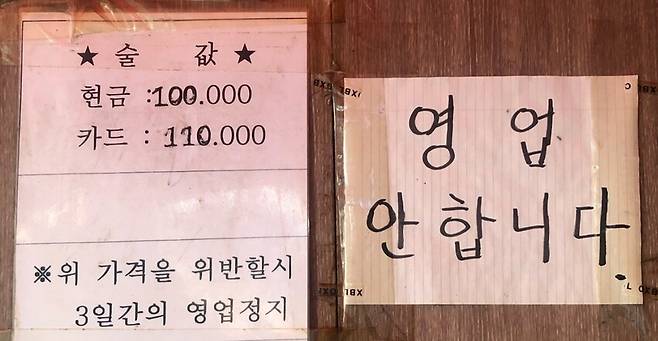 ★ 술 값 ★
현금 : 100.000
카드 : 110.000
※위 가격을 위반할시
3일간의 영업정지
영 업
안합니다.